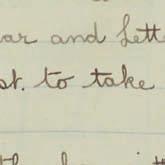 ar and Lett
st. to take